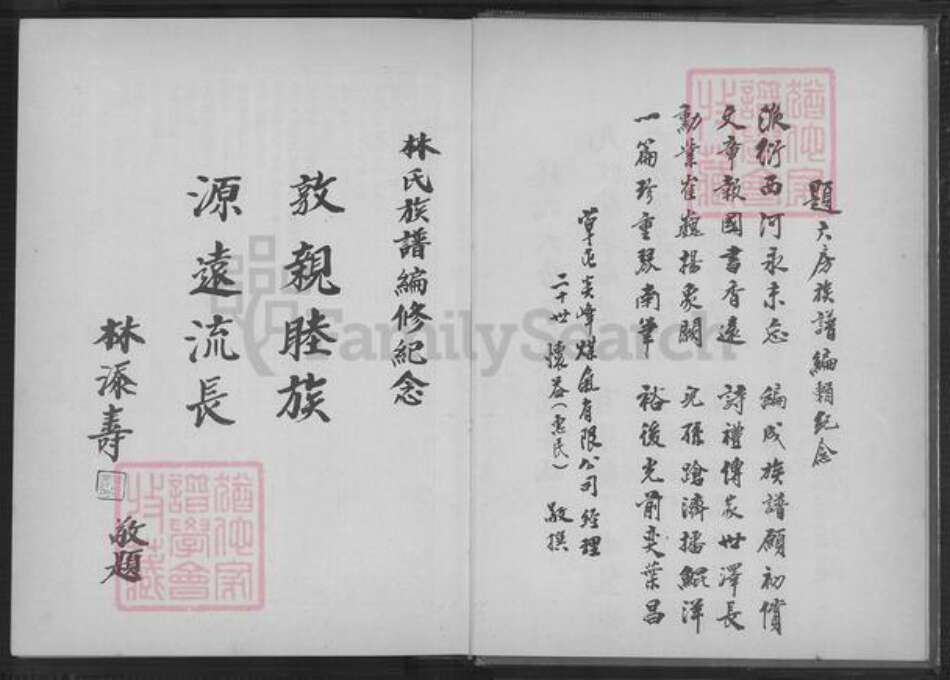 題六房族譜編輯紀念
派衍西河永未忘 編成族譜願初償
文章報國書香遠 詩禮傳家世澤長
勳業崔巍揚象闕 兒孫蹌濟播鯤洋
一篇珍重琴南筆 裕後光前奕葉昌
草屯炎峰煤氣有限公司經理
二十世 懷益(惠民) 敬撰
林氏族譜編修紀念
敦親睦族
源遠流長
林添壽 敬題
FamilySearch